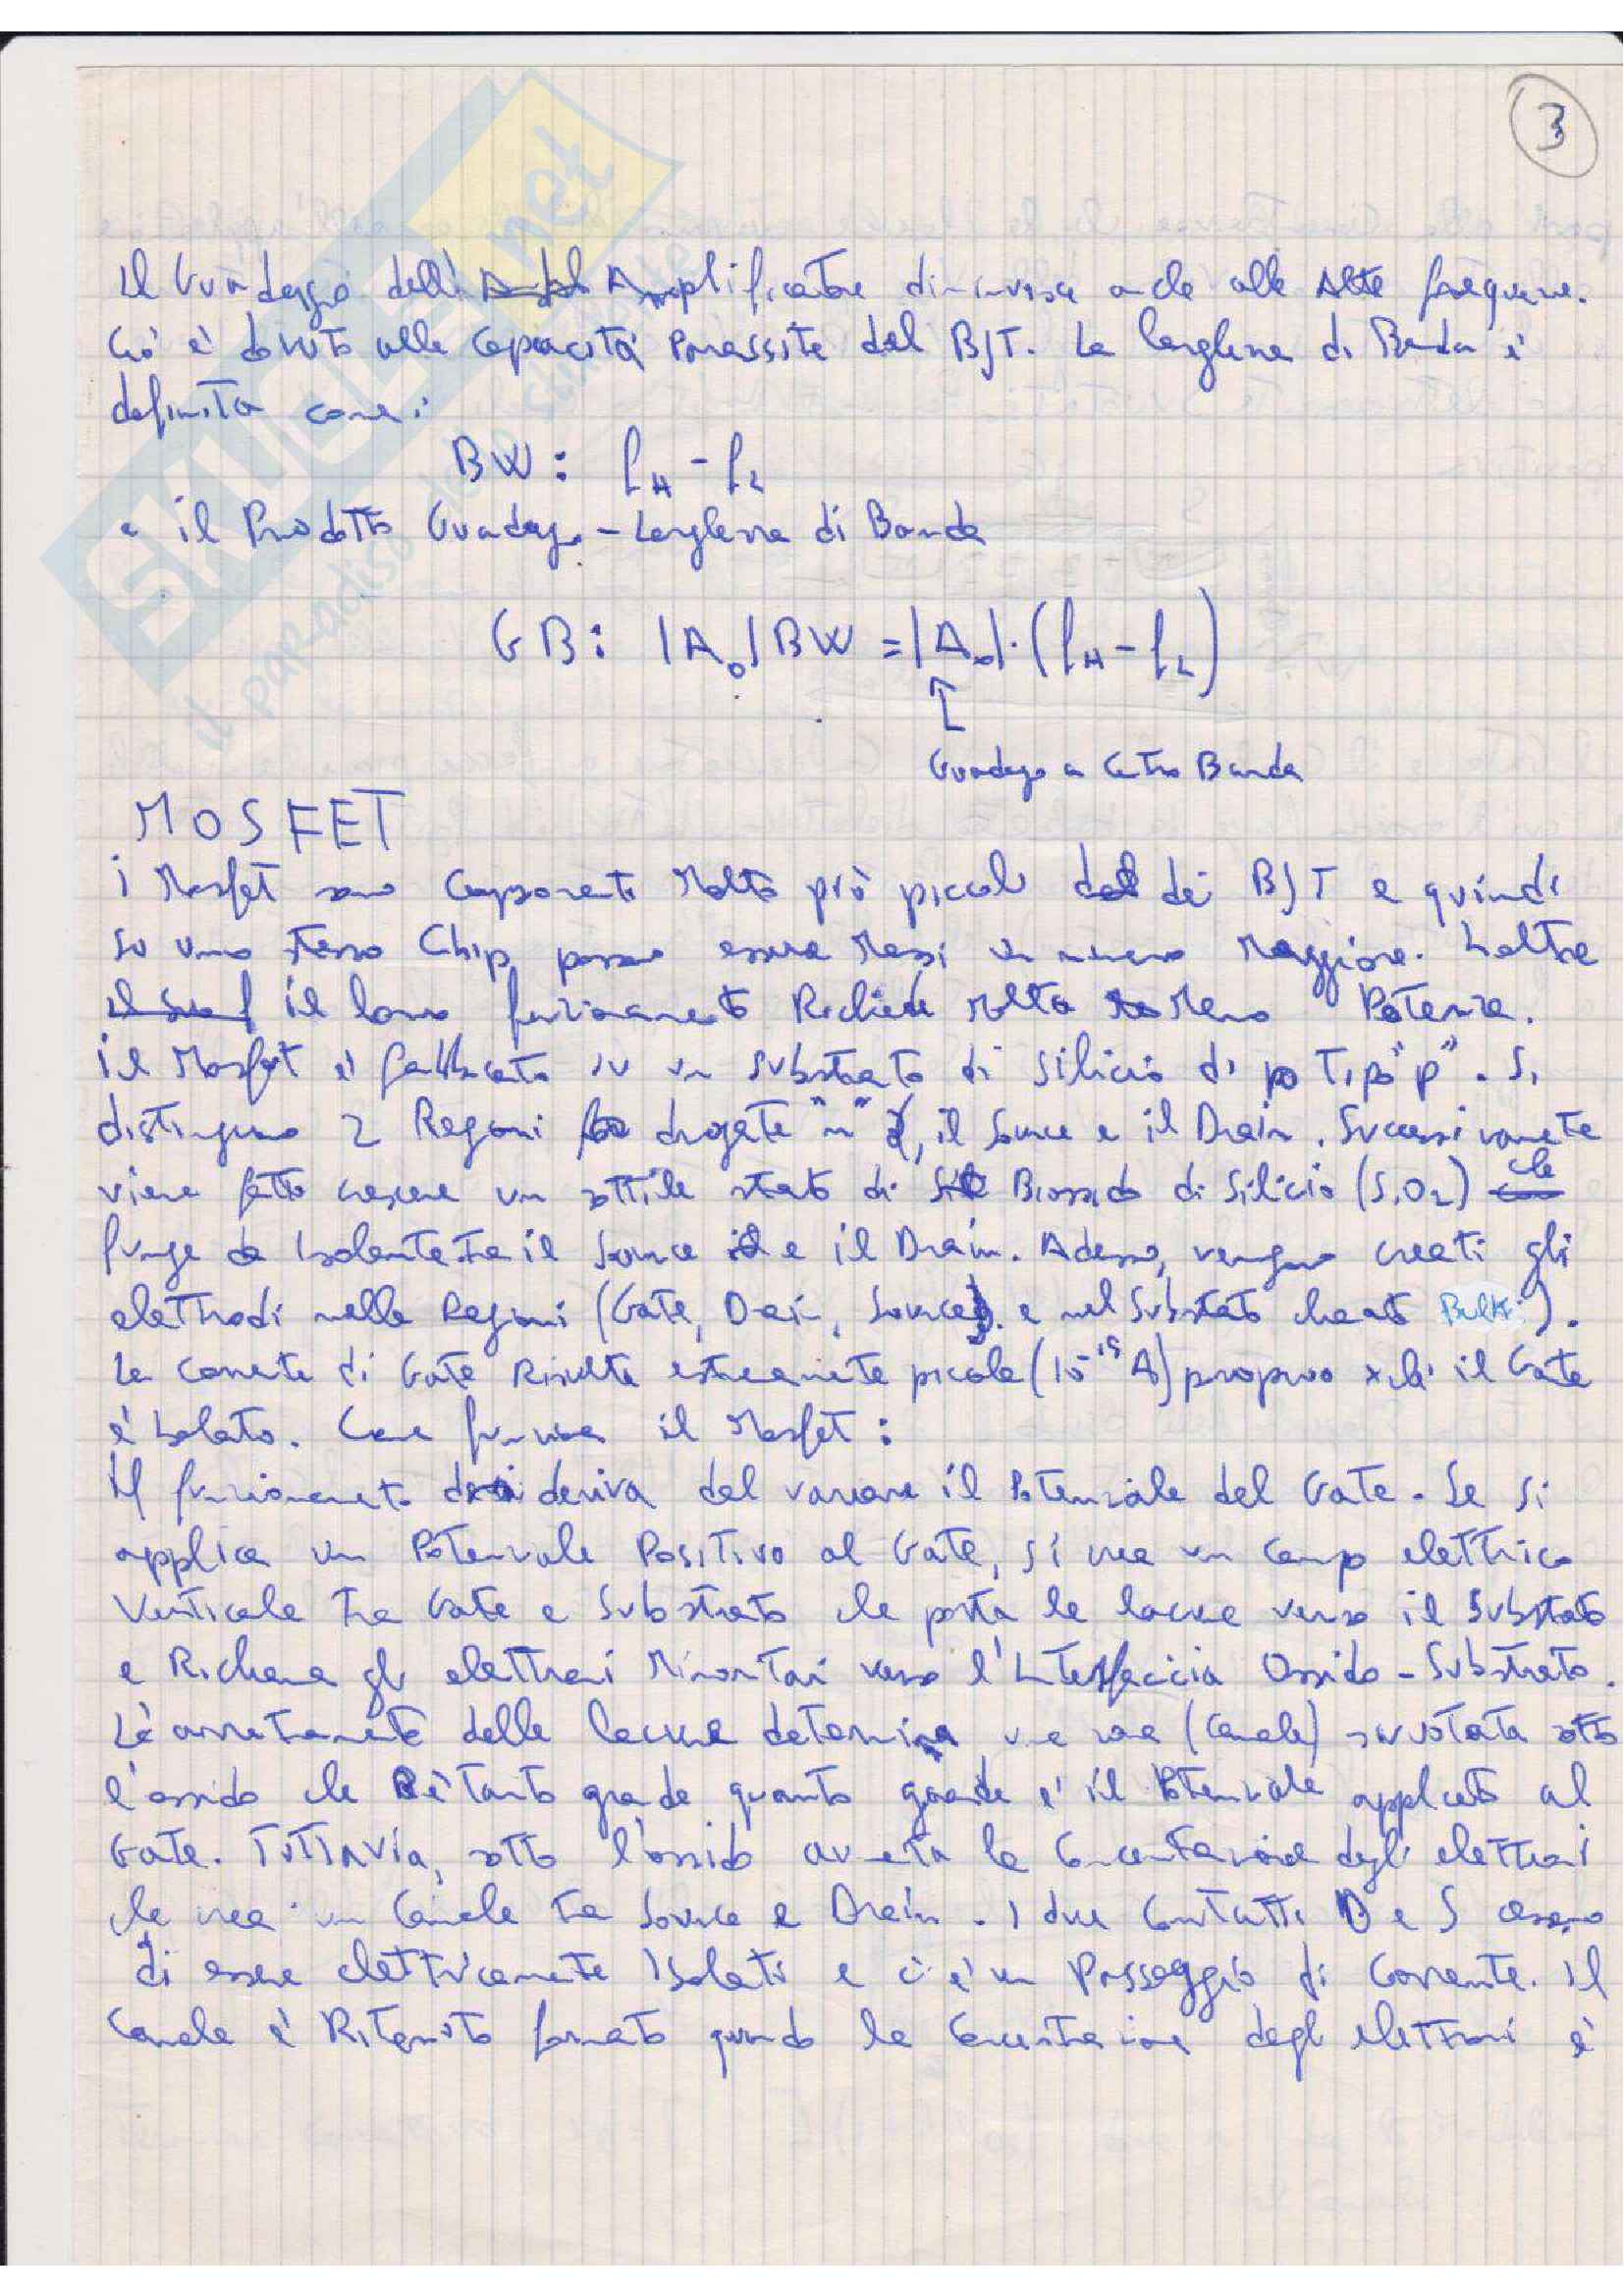 3
Il Guadagno dell' Amplificatore diminuisce anche alle Alte frequenze.
Ciò è dovuto alle Capacità Parassite del BJT. La larghezza di Banda è
definita come:
BW: fH - fL
e il Prodotto Guadagno - Larghezza di Banda
GB: |A0| BW = |A0| · (fH - fL)
Guadagno a Centro Banda
MOSFET
i Mosfet sono Componenti Molto più piccoli dei BJT e quindi
su uno stesso Chip possono essere Messi in numero Maggiore. Inoltre
il loro funzionamento Richiede Molta Meno Potenza.
il Mosfet è fabbricato su un substrato di silicio di Tipo "p". Si
distinguono 2 Regioni drogate "n", il Source e il Drain. Successivamente
viene fatto crescere un sottile strato di Biossido di Silicio (SiO2) che
funge da Isolante tra il Source e il Drain. Adesso, vengono creati gli
elettrodi nelle Regioni (Gate, Drain, Source e nel Substrato chiamato Bulk).
La Corrente di Gate Risulta estremamente piccola (10^-15 A) proprio xché il Gate
è Isolato. Come funziona il Mosfet:
il funzionamento deriva dal variare il Potenziale del Gate. Se si
applica un Potenziale Positivo al Gate, si crea un Campo elettrico
Verticale tra Gate e Substrato che porta le lacune verso il Substrato
e Richiama gli elettroni Minoritari verso l'Interfaccia Ossido - Substrato.
L'arretramento delle lacune determina una zona (Canale) svuotata sotto
l'ossido che è tanto grande quanto grande è il Potenziale applicato al
Gate. Tuttavia, sotto l'ossido aumenta la Concentrazione degli elettroni
che crea un Canale tra Source e Drain. I due Contatti D e S cessano
di essere elettricamente Isolati e c'è un Passaggio di Corrente. Il
Canale è Ritenuto formato quando la Concentrazione degli elettroni è
SKUOLA.net
il paradiso dello studente